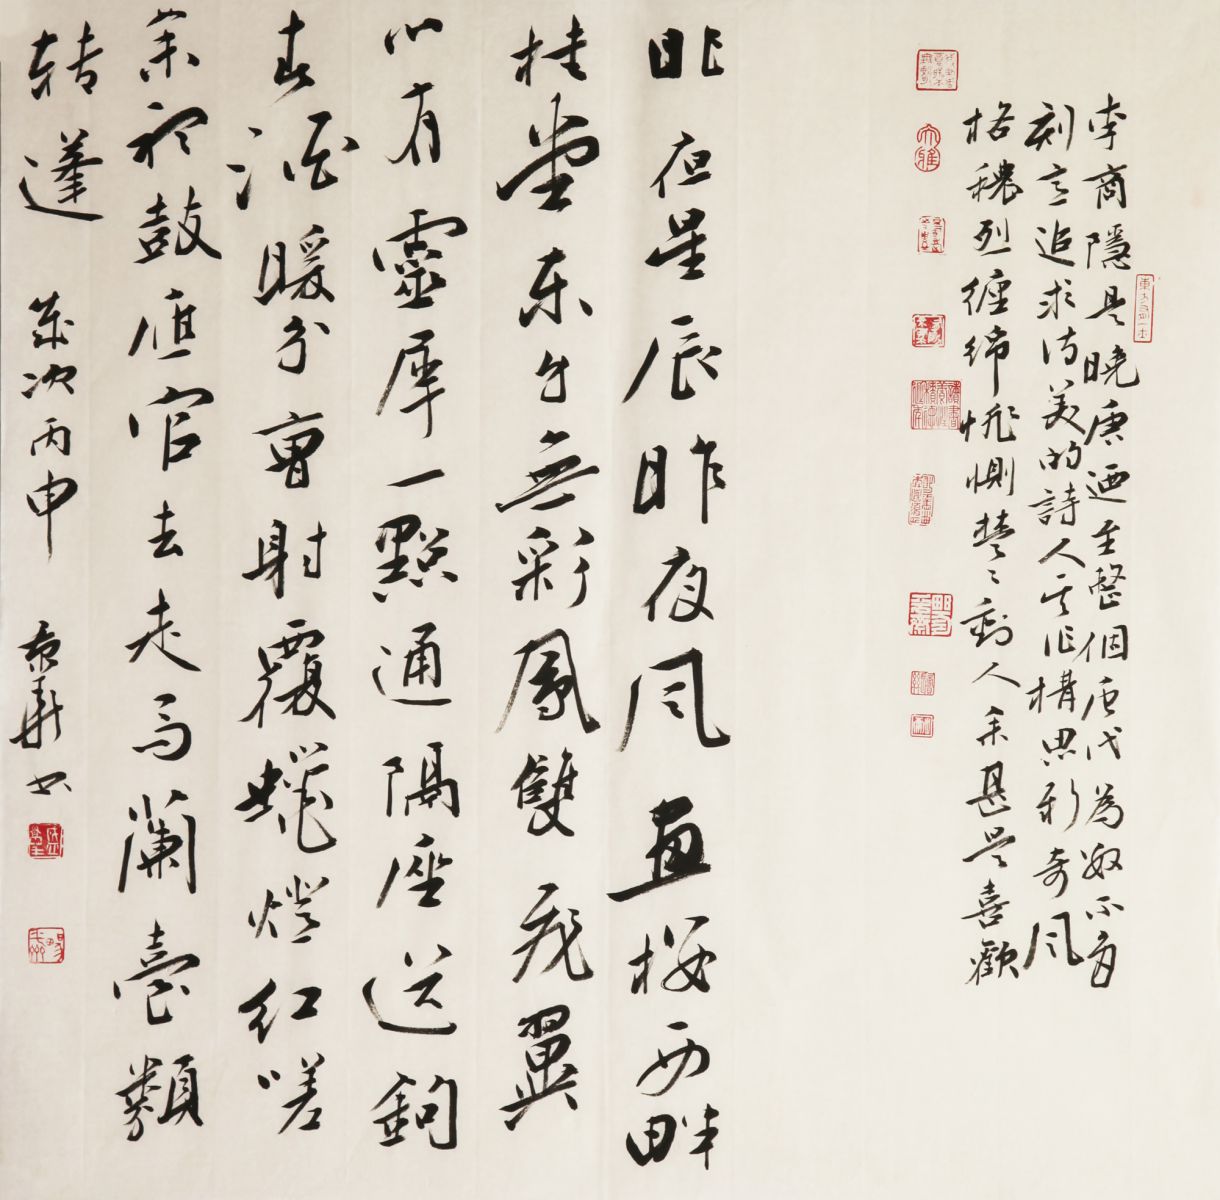 李商隱是晚唐迺至整個唐代為數不多
刻意追求詩美的詩人其作構思新奇風
格穠烈纏綿悱惻楚楚動人余甚是喜歡
昨夜星辰昨夜風畫樓西畔
桂堂東身無彩鳳雙飛翼
心有靈犀一點通隔座送鉤
春酒暖分曹射覆蠟燈紅嗟
余聽鼓應官去走馬蘭臺類
转蓬 歲次丙申 書